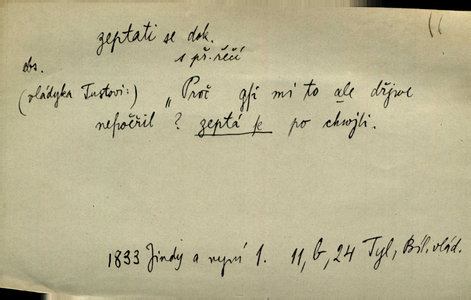 zeptati se dok.
s př. řečí
obs.
(vládyka Tustovi:) „Proč gsi mi to ale dřjwe
nesvěřil ? zeptá se po chwjli.
1833 Jindy a nyní 1. 11, b, 24 Tyl, Bíl. vlád.